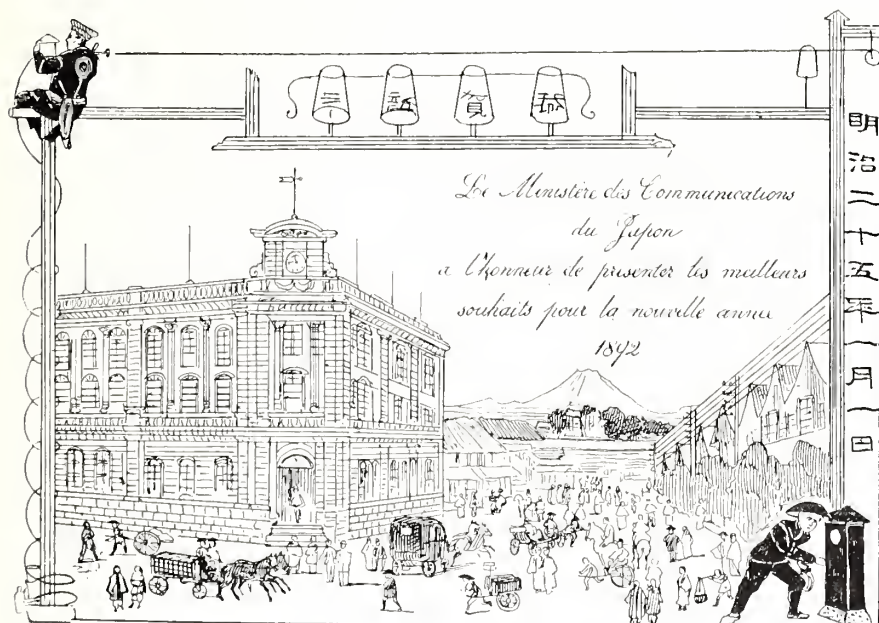 恭賀新
Le Ministère des Communications
du Japon
a l'honneur de presenter les meilleurs
souhaits pour la nouvelle annee
1892
明治二十五年一月一日